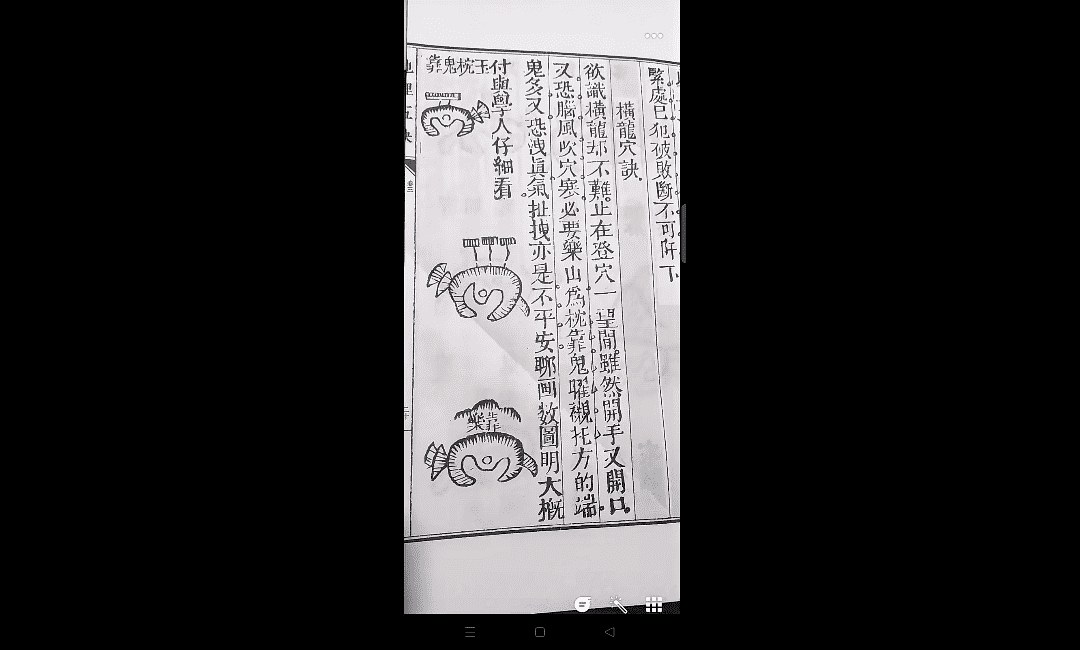 緊處已犯被敗斷不可阡下
橫龍穴訣。
欲識橫龍却不難。止在登穴一望間。雖然開手又開口。
又恐腦風吹穴寒。必要樂山爲枕靠。鬼曜襯托方的端。
鬼多又恐洩眞氣。扯拽亦是不平安。聊画数圖明大概
付與學人仔細看。
玉枕鬼靠
靠樂